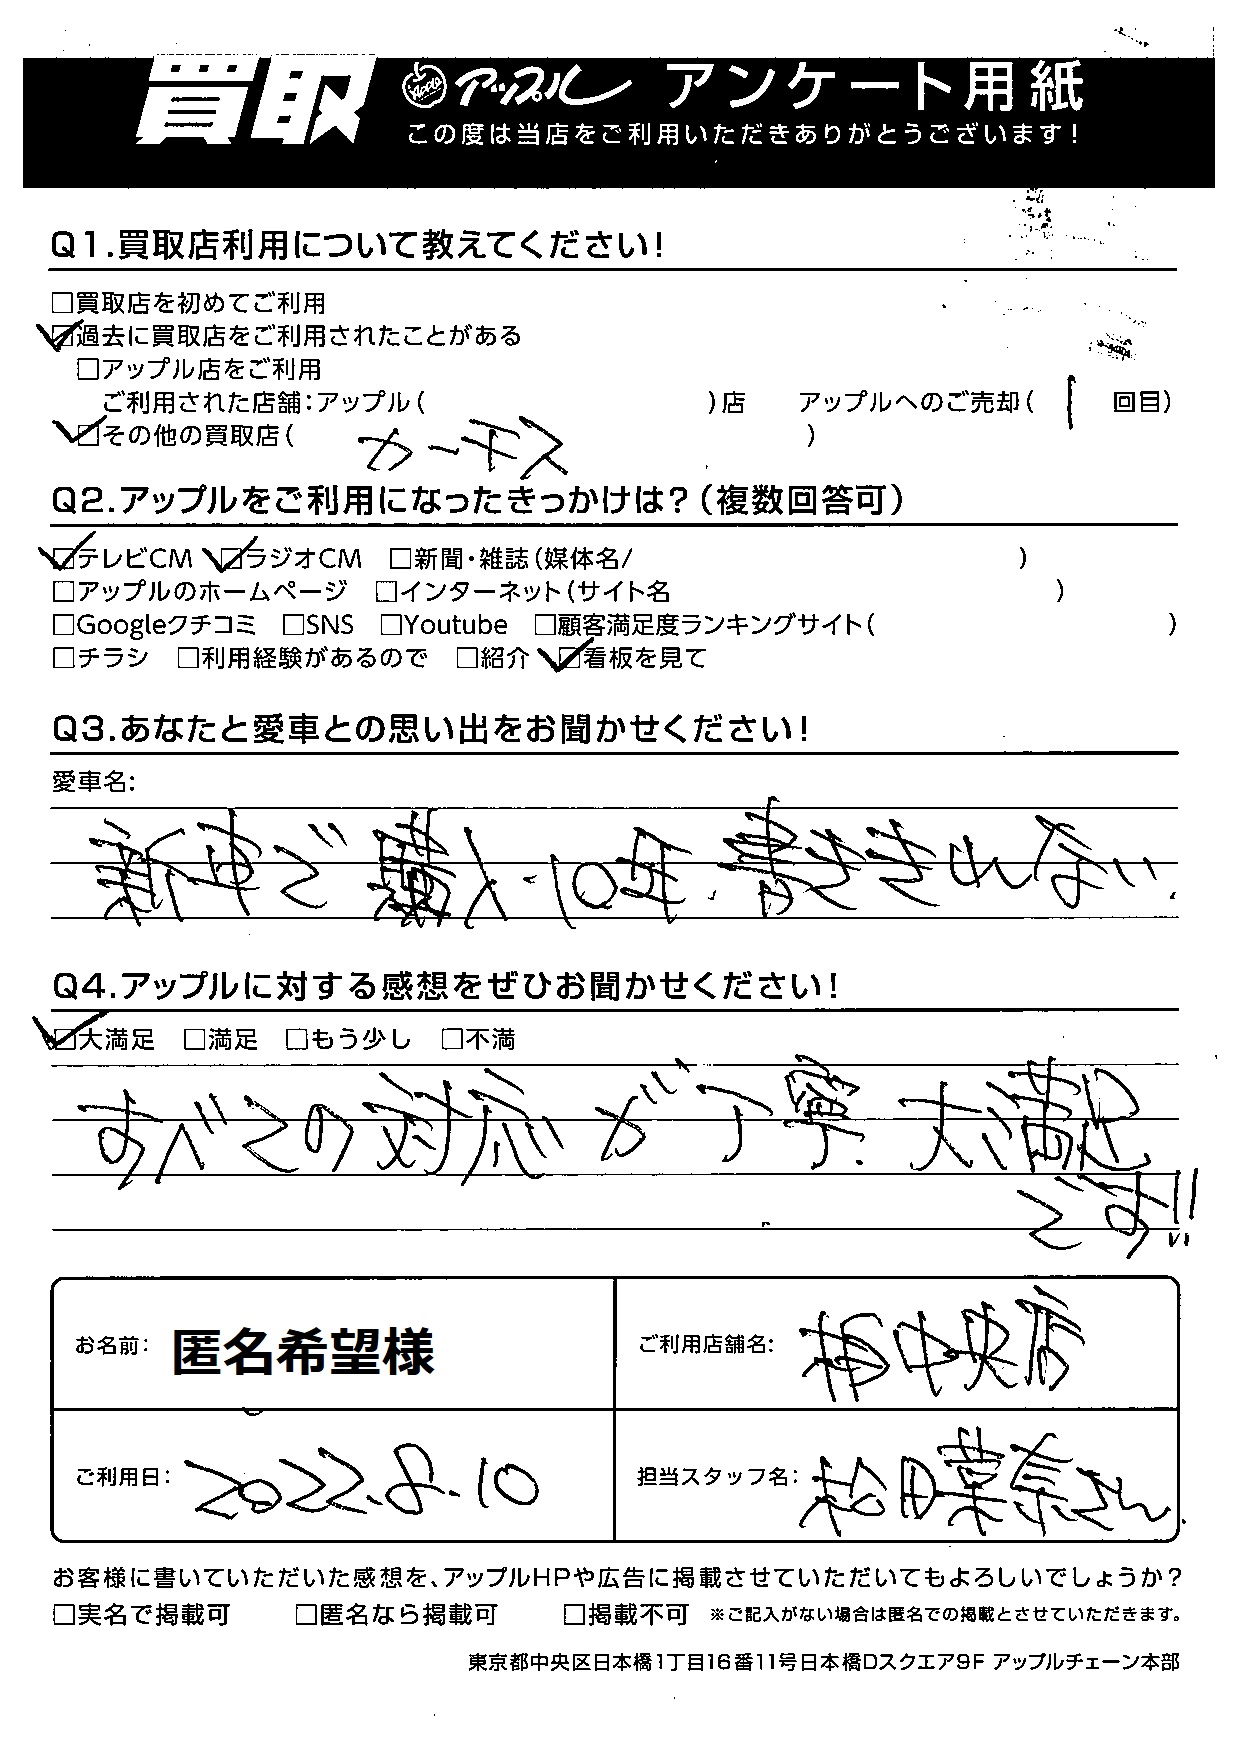 買取 Apple アップル アンケート用紙
この度は当店をご利用いただきありがとうございます!
Q1.買取店利用について教えてください!
□買取店を初めてご利用
☑過去に買取店をご利用されたことがある
□アップル店をご利用
ご利用された店舗:アップル( )店 アップルへのご売却( 1 回目)
☑その他の買取店( カーチス )
Q2.アップルをご利用になったきっかけは?(複数回答可)
☑テレビCM ☑ラジオCM □新聞・雑誌(媒体名/ )
□アップルのホームページ □インターネット(サイト名 )
□Googleクチコミ □SNS □Youtube □顧客満足度ランキングサイト( )
□チラシ □利用経験があるので □紹介 ☑看板を見て
Q3.あなたと愛車との思い出をお聞かせください!
愛車名:
新車で購入・10年、書ききれない.
Q4.アップルに対する感想をぜひお聞かせください!
☑大満足 □満足 □もう少し □不満
すべての対応が丁寧.大満足
です!!
お名前: 匿名希望様 ご利用店舗名: 柏中央店
ご利用日: 2022.8.10 担当スタッフ名: 松田菜奈さん
お客様に書いていただいた感想を、アップルHPや広告に掲載させていただいてもよろしいでしょうか?
□実名で掲載可 □匿名なら掲載可 □掲載不可 ※ご記入がない場合は匿名での掲載とさせていただきます。
東京都中央区日本橋1丁目16番11号日本橋Dスクエア9F アップルチェーン本部